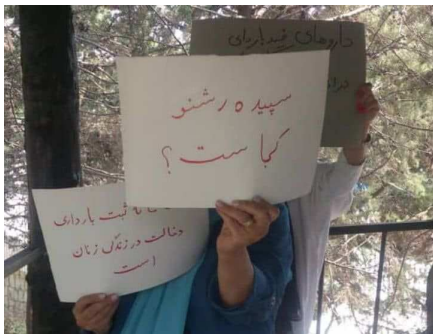 داروهای ضدبارداری
سپیده رشنو
کجاست؟
ثبت بارداری
دخالت در زندگی زنان
است